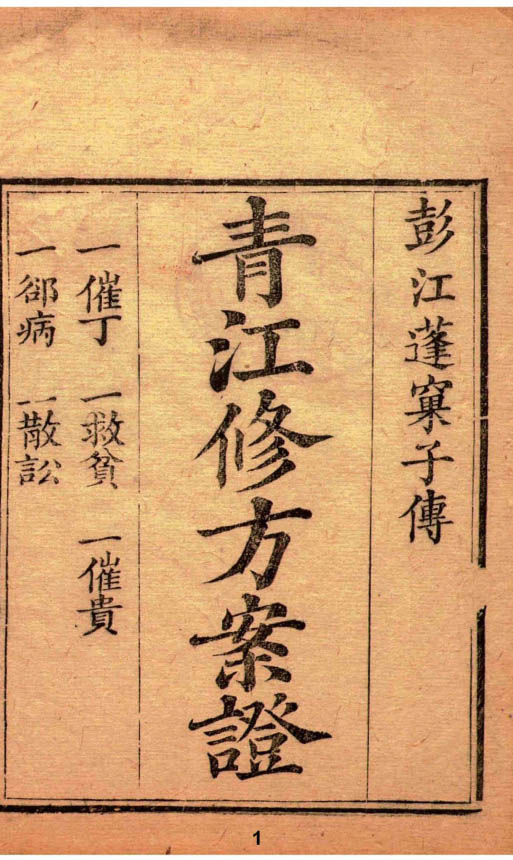 彭江蓬窠子傳
青江修方案證
一催丁 一救貧 一催貴
一郤病 一散訟
1